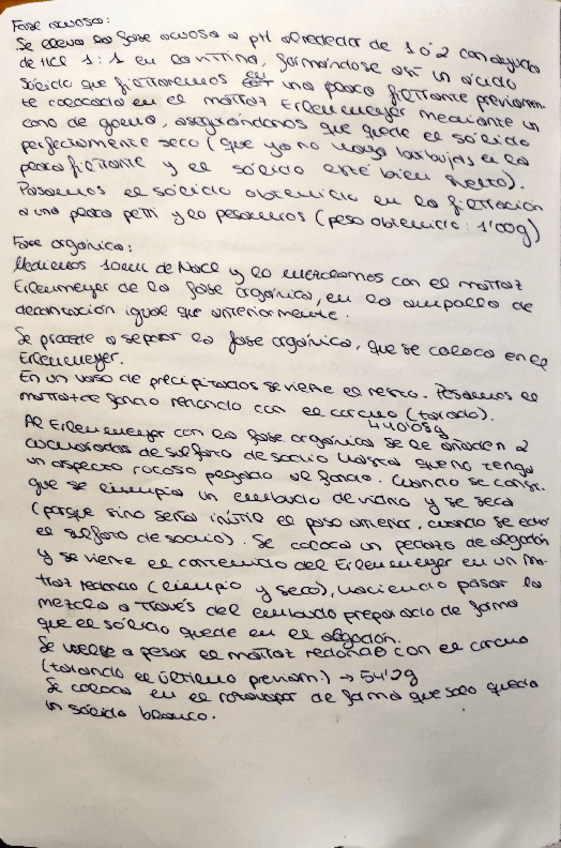 Fase acuosa:
Se lleva la fase acuosa a pH alrededor de 1 ó 2 con ayuda
de HCl 1:1 en continua, formándose así un ácido
sólido que filtraremos en una placa filtrante previamen-
te colocada en el matraz Erlenmeyer mediante un
cono de goma, asegurándonos que quede el sólido
perfectamente seco (que ya no haya burbujas en la
placa filtrante y el sólido esté bien seco).
Pasamos el sólido obtenido en la filtración
a una placa petri y lo pesamos (peso obtenido: 1'00g)
Fase orgánica:
Medimos 10ml de NaCl y lo mezclamos con el matraz
Erlenmeyer de la fase orgánica, en la ampolla de
decantación igual que anteriormente.
Se procede a separar la fase orgánica, que se coloca en el
Erlenmeyer.
En un vaso de precipitados se vierte el resto. Pesamos el
matraz de fondo redondo con el corcho (tarado).
44'08g
Al Erlenmeyer con la fase orgánica se le añaden 2
cucharadas de sulfato de sodio hasta que no tenga
un aspecto rocoso pegado al fondo. Cuando se consi-
que se limpia un embudo de vidrio y se seca
(porque sino sería inútil el paso anterior, cuando se echó
el sulfato de sodio). Se coloca un pedazo de algodón
y se vierte el contenido del Erlenmeyer en un ma-
traz redondo (limpio y seco), haciendo pasar la
mezcla a través del embudo preparado de forma
que el sólido quede en el algodón.
Se vuelve a pesar el matraz redondo con el corcho
(tarando el último previam.) → 54'2g
Se coloca en el rotavapor de forma que solo queda
un sólido blanco.